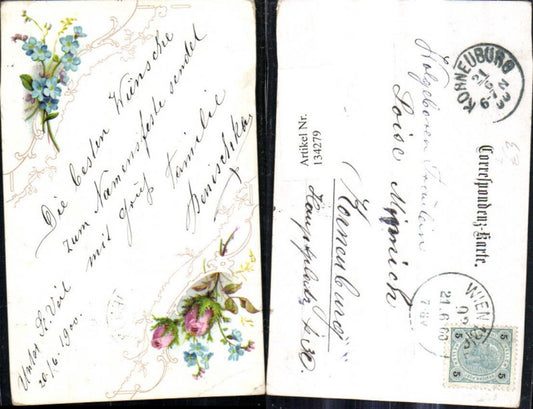 Die besten Wünsche
zum Namensfeste sendet
mit Gruß Familie
Unter St. Veit
20/6 1900.
KORNEUBURG
21
6
6-7
00
Correspondenz-Karte.
Loise
Korneuburg
Hauptplatz
Artikel Nr.
134279
WIEN
21.6.00
5 5
5 5